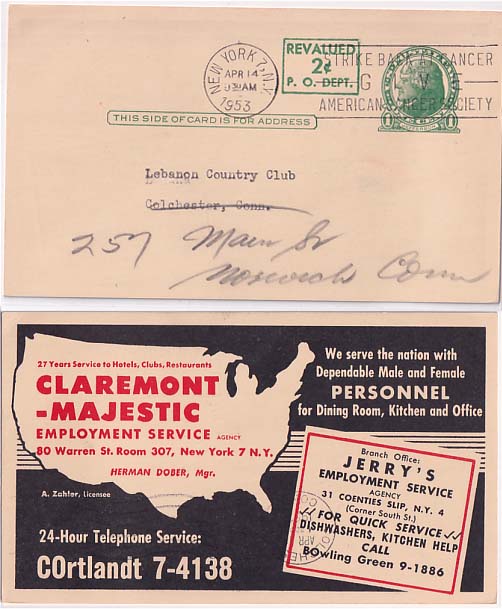 NEW YORK 7, N.Y.
APR 14
9 30 AM
1953
REVALUED
2¢
P. O. DEPT.
STRIKE BACK AT CANCER
GIVE
AMERICAN CANCER SOCIETY
THIS SIDE OF CARD IS FOR ADDRESS
Lebanon Country Club
Colchester, Conn.
257 Main St
Norwich Conn
27 Years Service to Hotels, Clubs, Restaurants
CLAREMONT
-MAJESTIC
EMPLOYMENT SERVICE AGENCY
80 Warren St. Room 307, New York 7 N.Y.
HERMAN DOBER, Mgr.
A. Zahler, Licensee
24-Hour Telephone Service:
COrtlandt 7-4138
We serve the nation with
Dependable Male and Female
PERSONNEL
for Dining Room, Kitchen and Office
Branch Office:
JERRY'S
EMPLOYMENT SERVICE
AGENCY
31 COENTIES SLIP, N.Y. 4
(Corner South St.)
✓✓ FOR QUICK SERVICE ✓✓
DISHWASHERS, KITCHEN HELP
CALL
BOwling Green 9-1886